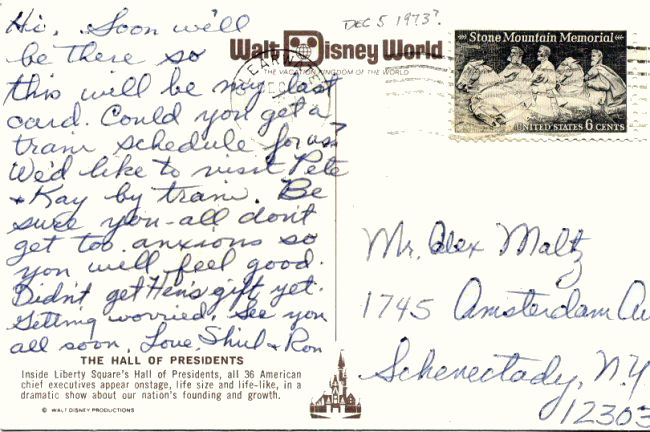 Hi, Soon we'll
be there so
this will be my last
card. Could you get a
train schedule for us?
We'd like to visit Pete
+ Kay by train. Be
sure you-all don't
get too anxious so
you will feel good.
Didn't get Hen's gift yet.
Getting worried. See you
all soon. Love Shirl + Ron
THE HALL OF PRESIDENTS
Inside Liberty Square's Hall of Presidents, all 36 American
chief executives appear onstage, life size and life-like, in a
dramatic show about our nation's founding and growth.
© WALT DISNEY PRODUCTIONS
DEC 5 1973?
Walt Disney World
THE VACATION KINGDOM OF THE WORLD
CLEARW
DEC
Stone Mountain Memorial
UNITED STATES 6 CENTS
Mr. Alex Maltz
1745 Amsterdam Av
Schenectady, N.Y.
12303